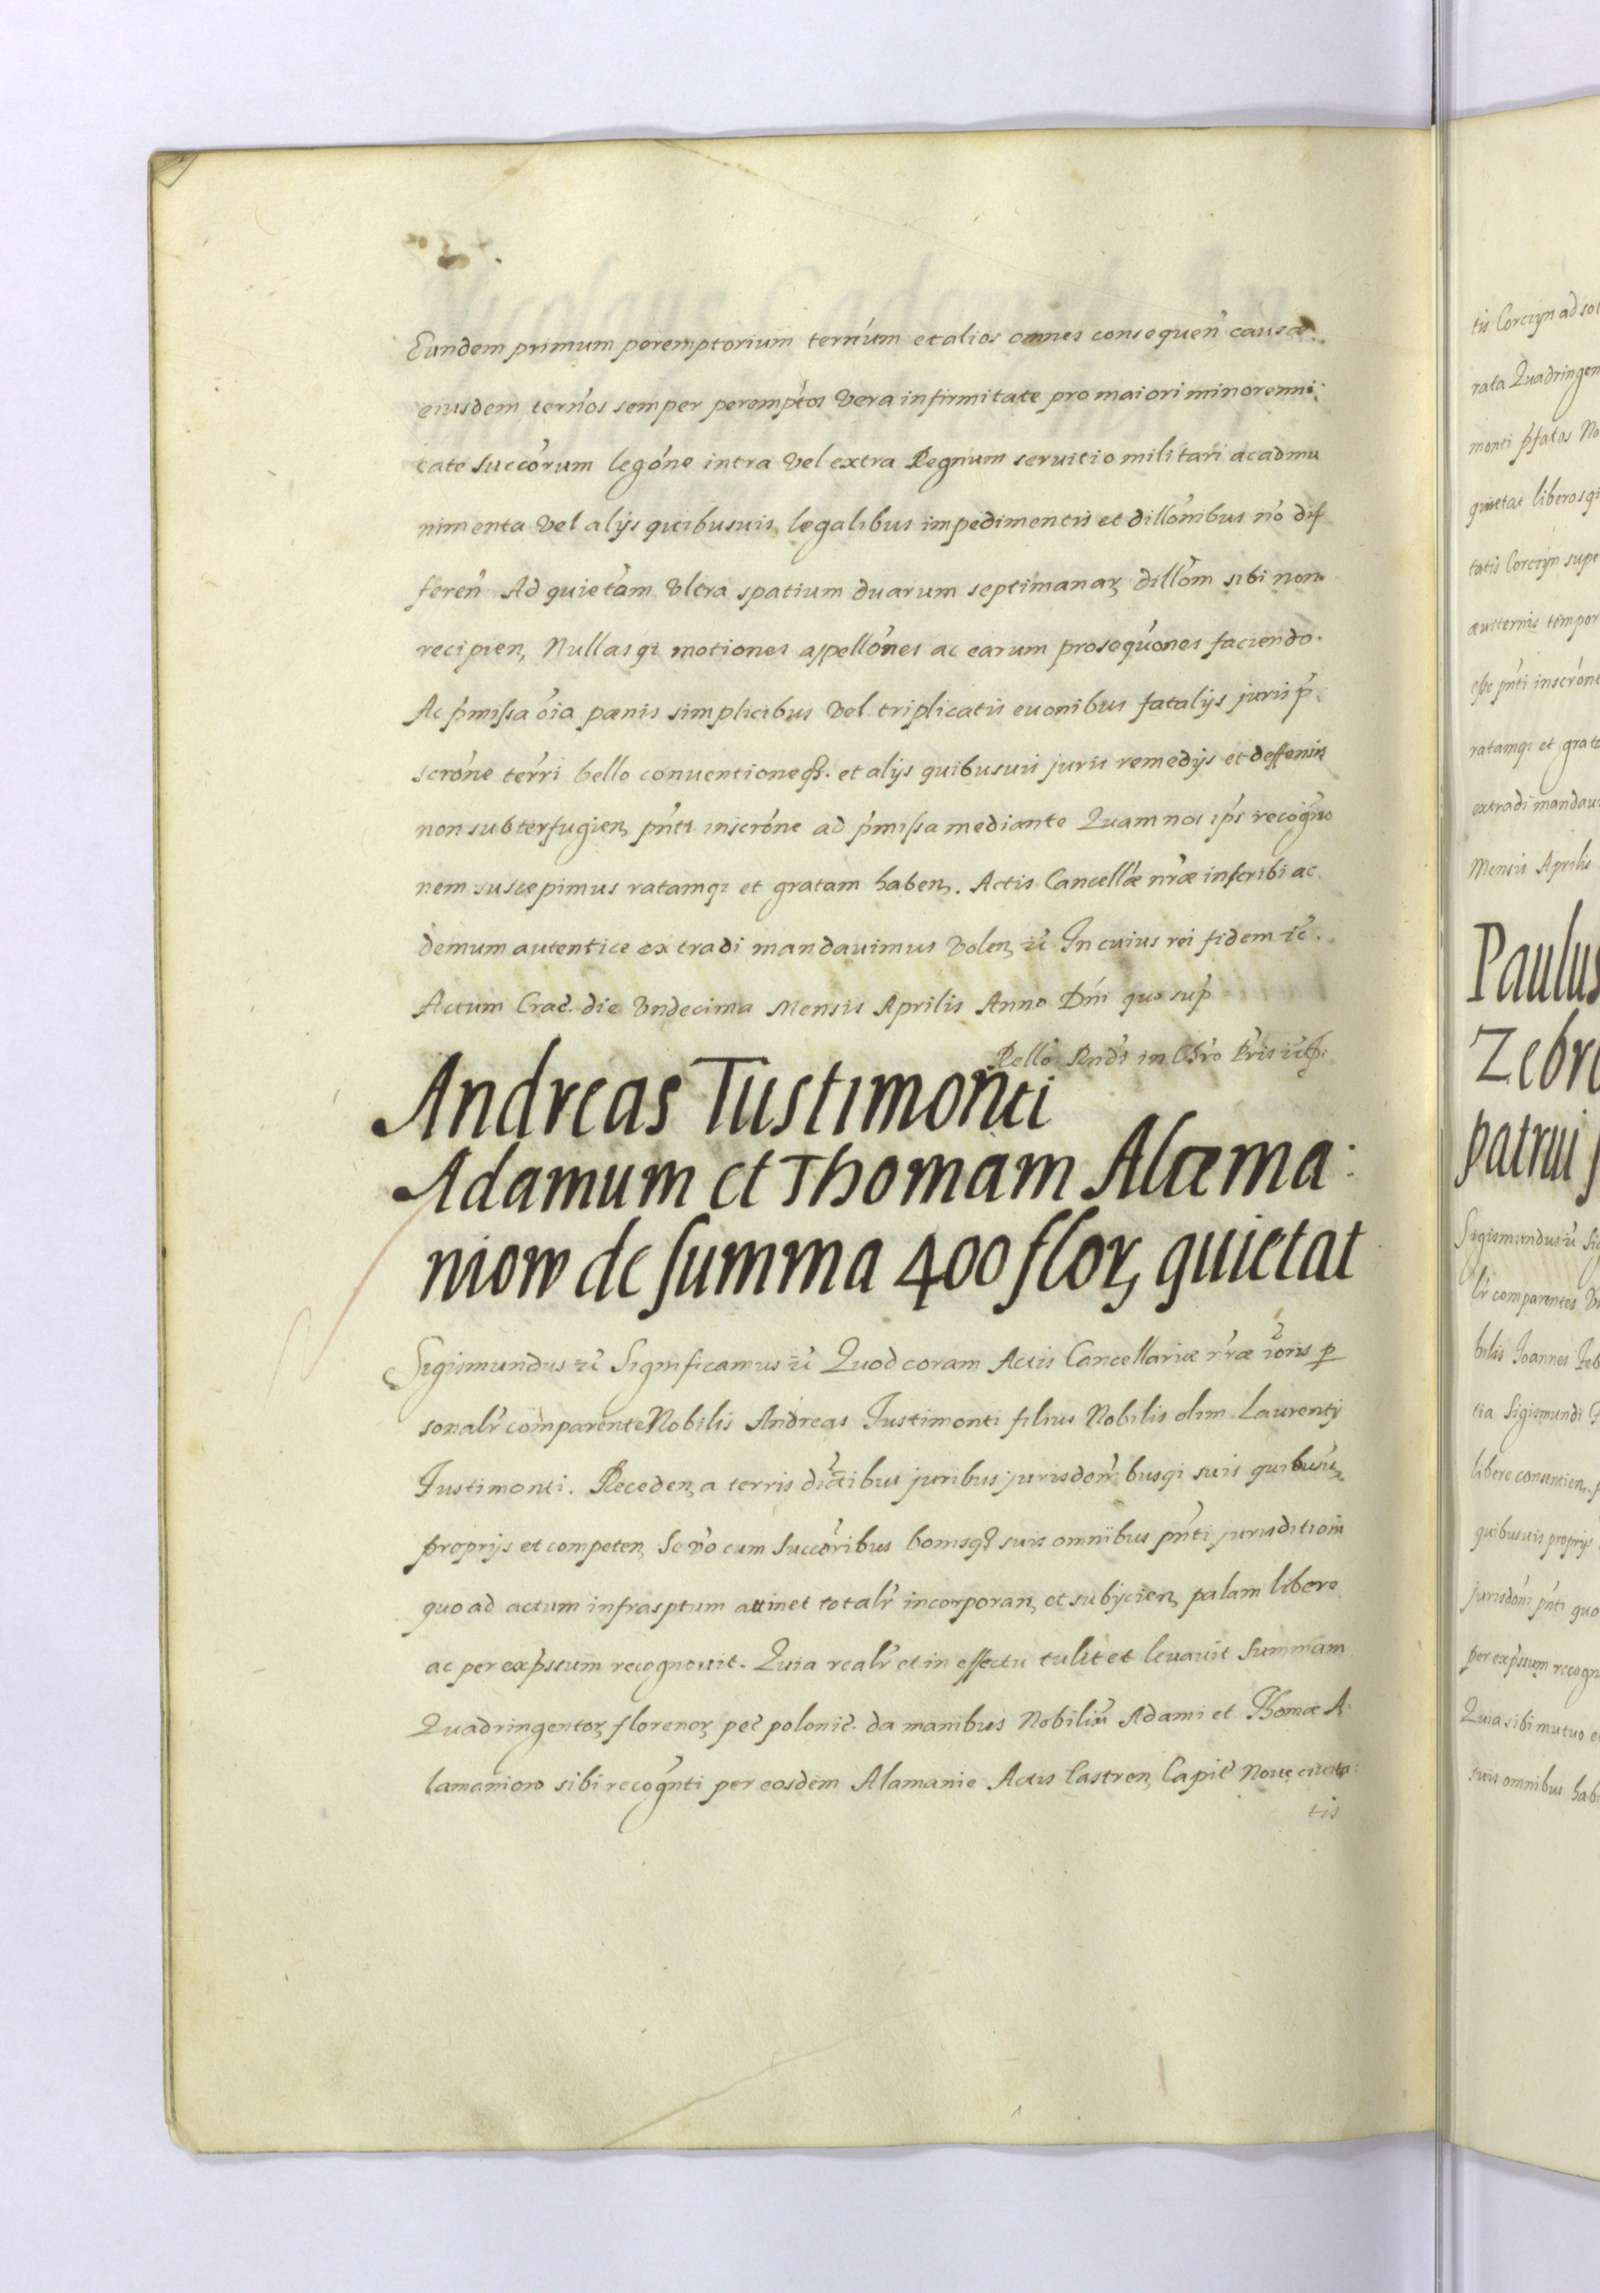 Eundem primum peremptorium ternúm et alios omnes consequen̄ causæ
eiusdem terńos semper perempt́os vera infirmitate pro maiori minorenni:
tate succórum legóne intra vel extra Regnum seruitio militari ac admu
nimenta vel alÿs quibusuis legalibus impedimentis et dillónibus nó dif
feren̄ Ad quietám vltra spatium duarum septimanaꝝ dillóm sibi non
recipien, Nullasqꝫ motiones apellónes ac earum prosequónes faciendo.
Ac p̄missa óia pœnis simplicibus vel triplicatis euonibus fatalÿs juris p̄
scróne terŕi bello conuentioneqꝫ. et alÿs quibusuis juris remedÿs et deffensis
non subterfugien, pn̄ti inscróne ad p̄missa mediante Quam nos ip̄s recogno
nem suscepimus ratamqꝫ et gratam haben. Actis Cancellæ nr̄æ inscribi ac
demum autentice extradi mandauimus volen, ꝛc̄ In cuius rei fidem ꝛc̄.
Actum Crac̄. die vndecima Mensis Aprilis Anno Dn̄i quo sup̄
Rello Rndi in Chr̄o Pr̄is vt s:
Andreas Iustimonti
Adamum et Thomam Alæma:
niow de summa 400 floꝝ quietat
Sigismundus ꝛc̄ Significamus ꝛc̄ Quod coram Actis Cancellariæ nr̄æ ꝛónis ꝑ
sonalr̄ comparente Nobilis Andreas Iustimonti filius Nobilis olim Laurentÿ
Iustimonti. Receden, a terris dictibus juribus jurisdon̄ibusqꝫ suis quibusu,
proprÿs et competen, Se vó cum Succóribus bonisqꝫ suis omnibus pn̄ti jurisditioni
quo ad actum infrasptum attinet totalr̄ incorporan, et subÿcien, palam libere
ac per exp̄ssum recognouit. Quia realr̄ et in effectu tulit et leuauit Summam
Quadringentoꝝ florenoꝝ pec̄ polonic̄. da manibus Nobiliu᷈ Adami et Thomæ A:
lamaniow sibi recogn̄ti per eosdem Alamanie Actis Castren, Capit̄ Noue ciuita:
tis
tis Corczyn ad
rata Quadringen
monti p̄fatos No
quietat liberosq
tatis Corczyn supe
æuiternis tempor
pn̄ti inscróne
ratamqꝫ et grat
extradi mandaui
Mensis Aprilis
Paulus
Zebr
patrui
Sigismundus ꝛc̄ Si
lr̄ comparentes
bilis Joannes
tia Sigismundi
libere
quibusuis proprÿs
jurisdóni pn̄ti quo
per exp̄ssum recogn
Quia sibi mutuo
suis omnibus hab